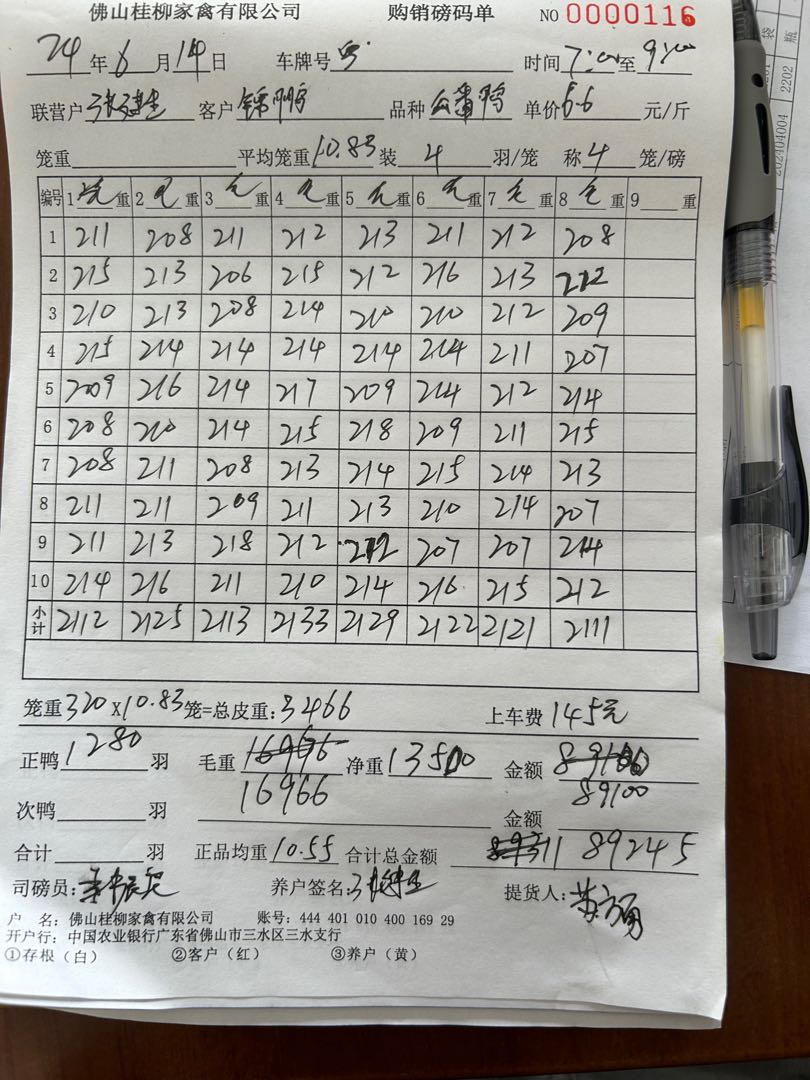 佛山桂柳家禽有限公司 购销磅码单 NO 0000116
24年6月14日 车牌号 时间7:00至9:00
联营户 客户 锦鹏 品种 白番鸭 单价6.6元/斤
笼重 平均笼重10.83装4羽/笼 称4笼/磅
编号 1毛重 2毛重 3毛重 4毛重 5毛重 6毛重 7毛重 8毛重 9重
1 211 208 211 212 213 211 212 208
2 215 213 206 215 212 216 213 212
3 210 213 208 214 210 210 212 209
4 215 214 214 214 214 214 211 207
5 209 216 214 217 209 214 212 214
6 208 210 214 215 218 209 211 215
7 208 211 208 213 214 215 214 213
8 211 211 209 211 213 210 214 207
9 211 213 218 212 212 207 207 214
10 214 216 211 210 214 216 215 212
小计 2112 2125 2113 2133 2129 2122 2121 2111
笼重320X10.83笼=总皮重:3466 上车费145元
正鸭1280羽 毛重 净重13500 金额
16966 89100
次鸭 羽 金额
合计 羽 正品均重10.55 合计总金额 89245
司磅员: 养户签名: 提货人:
户 名: 佛山桂柳家禽有限公司 账号: 444 401 010 400 169 29
开户行: 中国农业银行广东省佛山市三水区三水支行
①存根(白) ②客户(红) ③养户(黄)
202404004 2202 瓶
袋